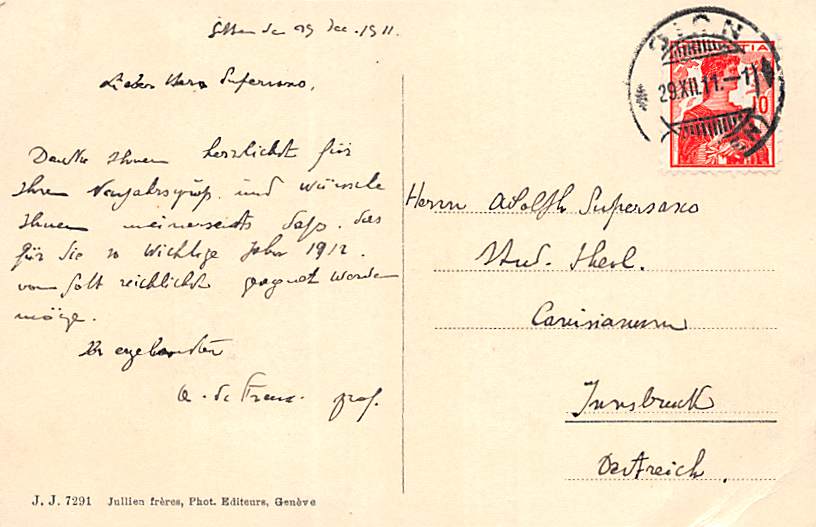 Sitten den 29 Dez. 1911.
Lieber Herr Supersaxo,
Danke Ihnen herzlichst für
Ihren Neujahrsgruß und wünsche
Ihnen meinerseits daß das
für Sie so wichtige Jahr 1912
von Gott reichlichst gesegnet werden
möge.
Ihr ergebenster
de Preux. prof.
J. J. 7291 Jullien frères, Phot. Editeurs, Genève
SION
29.XII.11.–1
10
Herrn Adolph Supersaxo
Stud. theol.
Canisianum
Innsbruck
Oestreich.